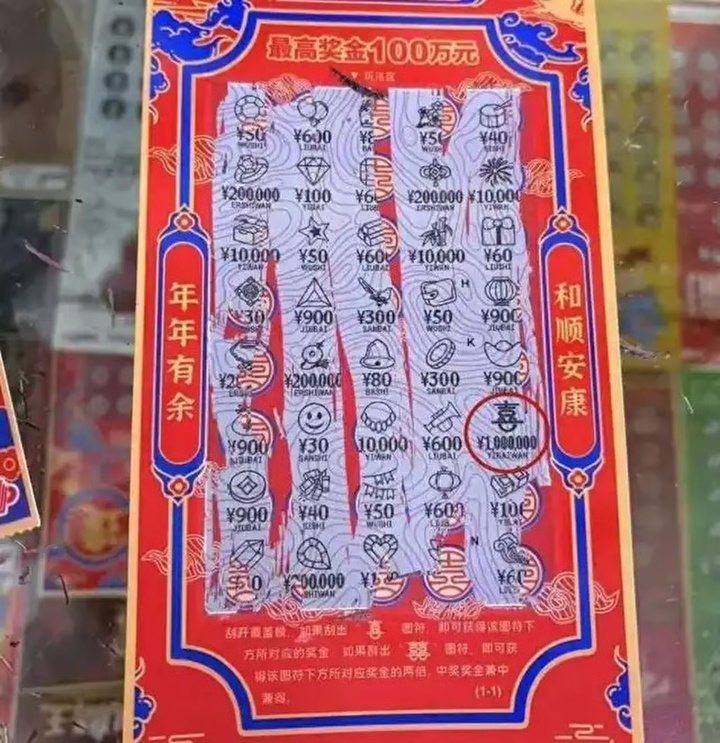 最高奖金100万元
玩法区
¥50 ¥600 ¥8 ¥50 ¥40
WUSHI LIUBAI BA WUSHI SISHI
¥200,000 ¥100 ¥60 ¥200,000 ¥10,000
ERSHIWAN YIBAI LIU ERSHIWAN YIWAN
¥10,000 ¥50 ¥600 ¥10,000 ¥60
YIWAN WUSHI LIUBAI YIWAN LIUSHI
H
¥30 ¥900 ¥300 ¥50 ¥900
JIUBAI SANBAI WUSHI JIUBAI
K
¥20 ¥200,000 ¥80 ¥300 ¥900
ERSHI ERSHIWAN BASHI SANBAI JIUBAI
喜
¥900 ¥30 10,000 ¥600 ¥1,000,000
JIUBAI SANSHI YIWAN LIUBAI YIBAIWAN
¥900 ¥40 ¥50 ¥600 ¥100
JIUBAI SISHI WUSHI LIUB YIBA
N
¥200,000 ¥60
SHIWAN
年年有余
和顺安康
刮开覆盖膜，如果刮出 喜 图符，即可获得该图符下
方所对应的奖金；如果刮出 囍 图符，即可获
得该图符下方所对应奖金的两倍。中奖奖金兼中
兼得。 (1-1)